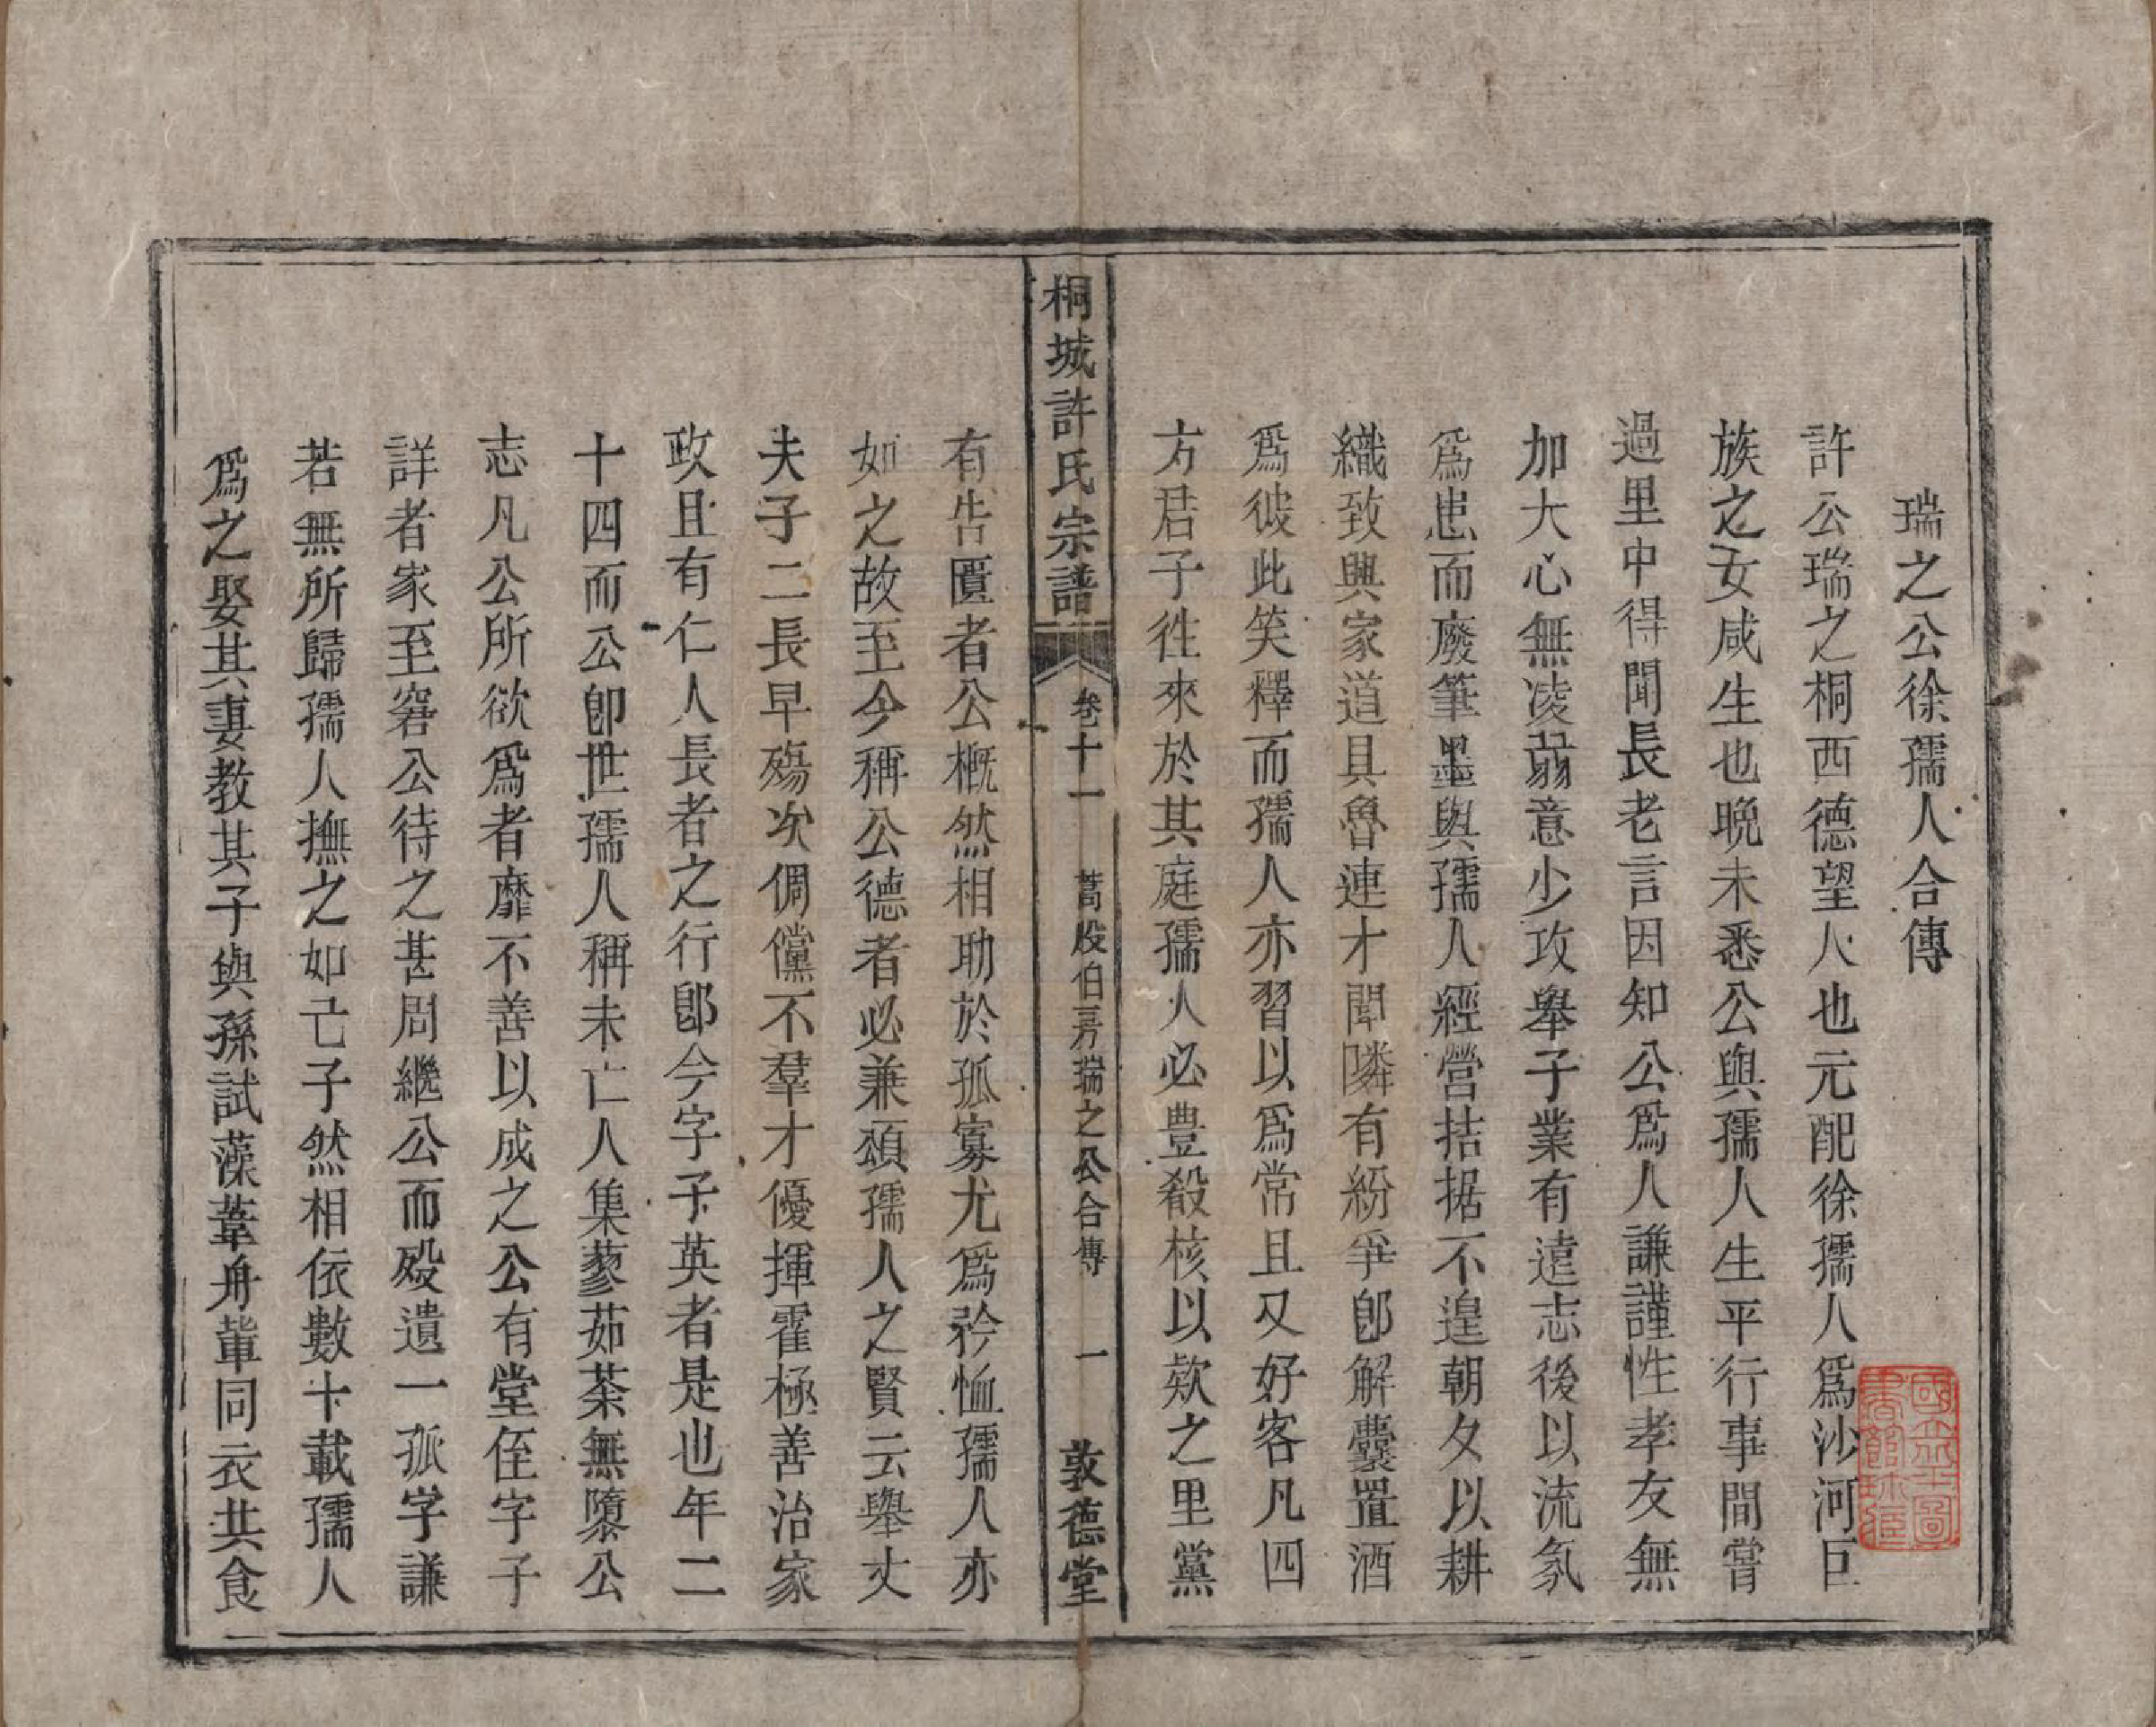 瑞之公徐孺人合傳
許公瑞之桐西德望人也元配徐孺人爲沙河巨
族之女咸生也晚未悉公與孺人生平行事間嘗
過里中得聞長老言因知公爲人謙謹性孝友無
加大心無凌弱意少攻舉子業有遠志後以流氛
爲患而廢筆墨與孺人經營拮据不遑朝夕以耕
織致興家道具魯連才聞隣有紛爭卽解囊置酒
爲彼此笑釋而孺人亦習以爲常且又好客凡四
方君子徃來於其庭孺人必豊殽核以欵之里黨
桐城許氏宗譜
卷十一
瑞之公合傳
一
敦德堂
有告匱者公概然相助於孤寡尤爲矜恤孺人亦
如之故至今稱公德者必兼頌孺人之賢云舉丈
夫子二長早殤次倜儻不羣才優揮霍極善治家
政且有仁人長者之行卽今字子英者是也年二
十四而公卽世孺人稱未亡人集蓼茹荼無隳公
志凡公所欲爲者靡不善以成之公有堂侄字子
詳者家至窘公待之甚周繼公而殁遺一孤字謙
若無所歸孺人撫之如己子然相依數十載孺人
爲之娶其妻教其子與孫試藻葦舟軰同衣共食
國立北平圖
書館珍藏